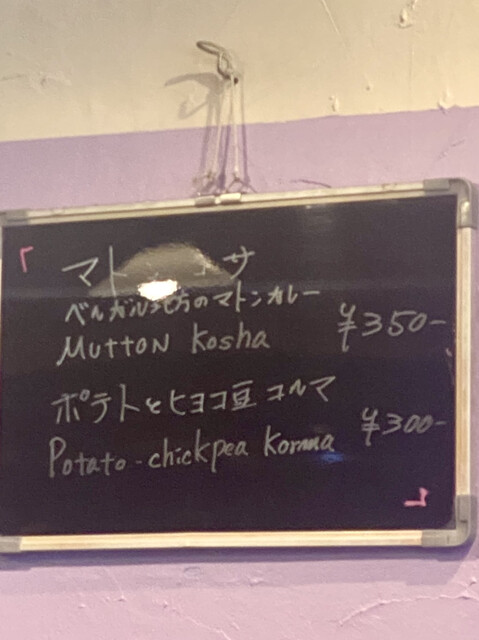 マト
サ
ベンガル地方のマトンカレー
MUTTON Kosha ¥350-
ポテトとヒヨコ豆コルマ
Potato-chickpea Korma ¥300-